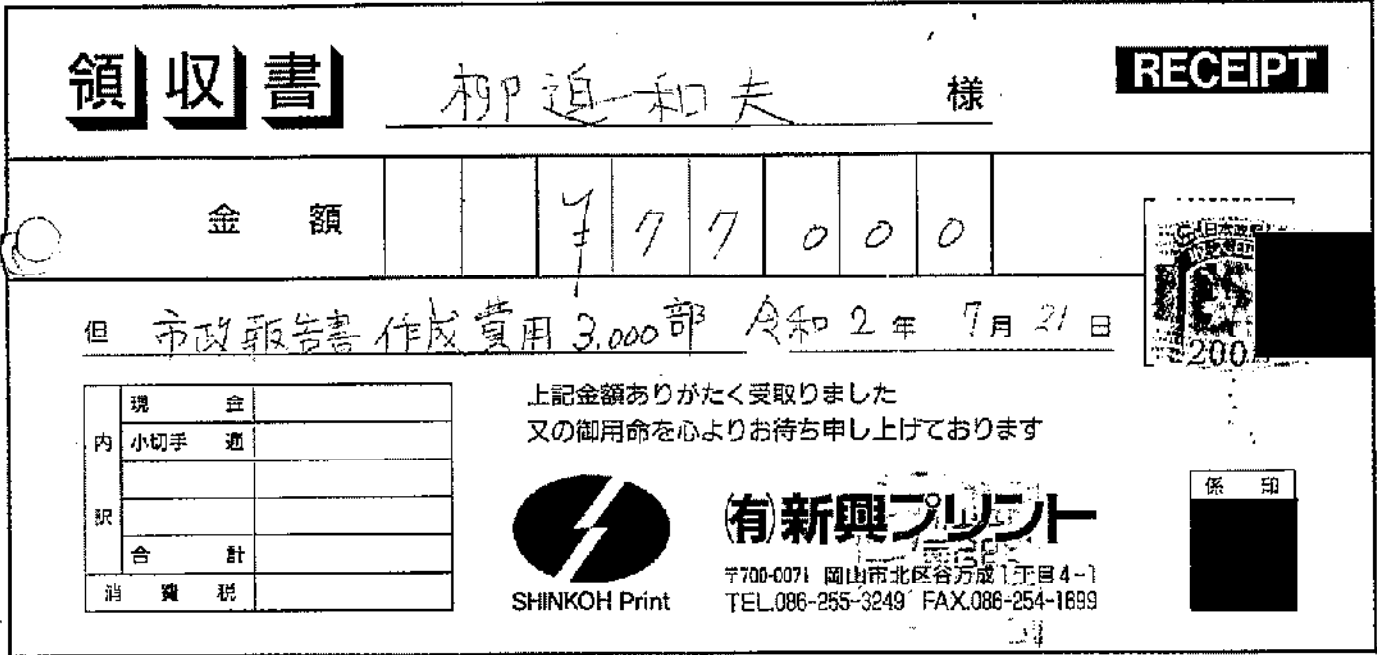 領収書 柳迫和夫 様 RECEIPT
金額 ¥77000
但 市政報告書作成費用3,000部 令和2年 7月21日
日本政府
200
内訳
現金
小切手 通
合計
消費税
上記金額ありがたく受取りました
又の御用命を心よりお待ち申し上げております
SHINKOH Print
㈲新興プリント
〒700-0071 岡山市北区谷万成1丁目4-1
TEL.086-255-3249 FAX.086-254-1699
係印